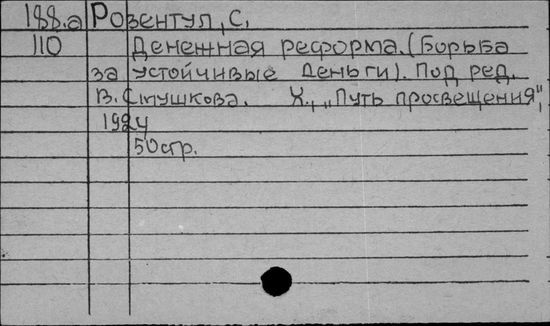 188.а Розентул, С.
110 Денежная реформа. (Борьба
за устойчивые деньги). Под ред.
В. Смушкова. Х., „Путь просвещения",
1924
50стр.